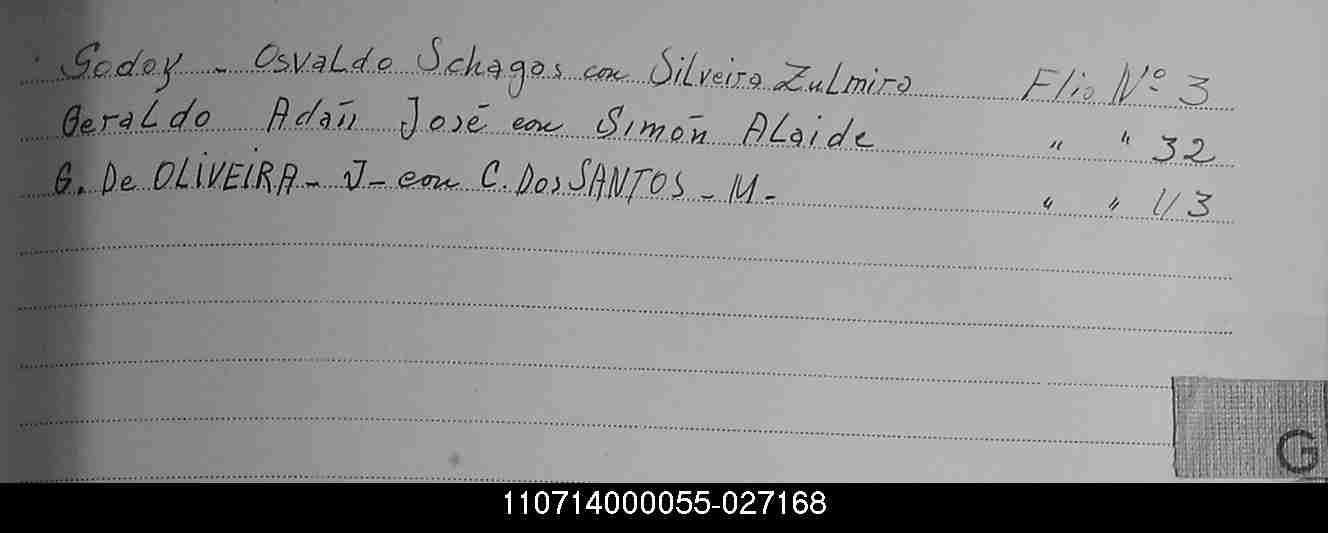 Godoy - Osvaldo Schagas con Silveira Zulmira Flio Nº 3
Geraldo Adán José con Simón Alaide " " 32
G. De OLIVEIRA - J - con C. Dos SANTOS - M. " " 43
G
110714000055-027168